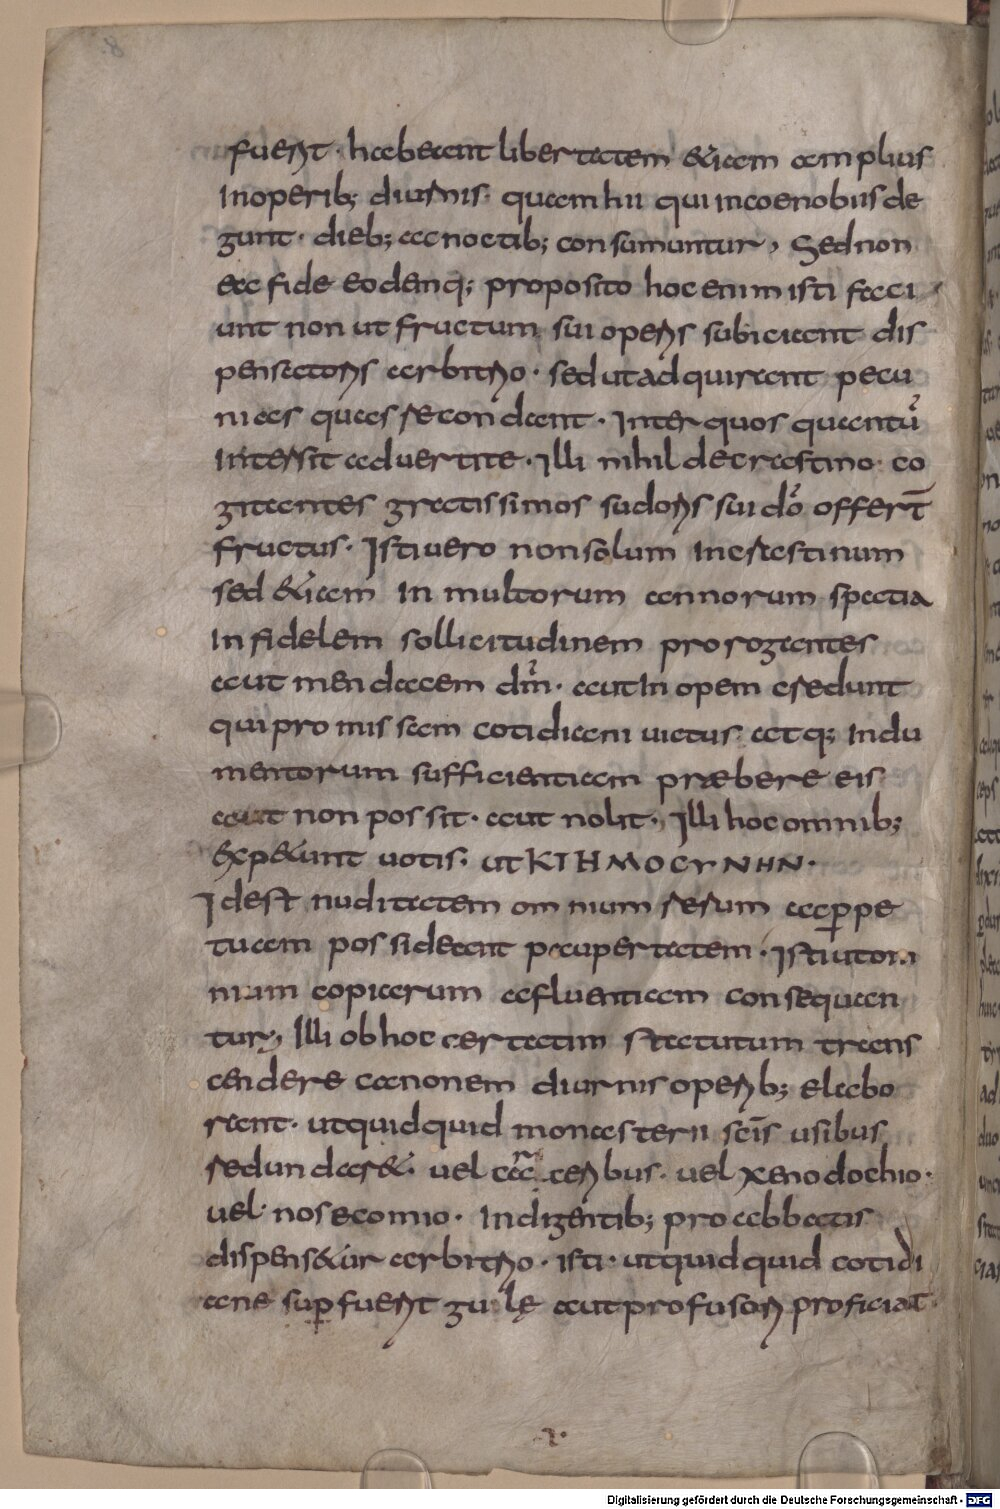 fuerit · habeant libertatem &iam amplius
In operib; diurnis · quam hii qui in coenobiis de
gunt · dieb; ac noctib; consumuntur, Sed non
ea fide eodemq; proposito hoc enim isti faci
unt non ut fructum sui operis subiciant dis
pensatoris arbitrio · sed ut adquirant pecu
nias quas recondant · Inter quos quantũ
Intersit advertite · Illi nihil de crastino co
gitantes gratissimos sudoris sui dõ offert̄
fructus · Isti vero non solum In crastinum
sed &iam In multorum annorum spatia
Infidelem sollicitudinem prorogantes
aut mendacem dm̄ · aut Inopem credunt
qui promissam cotidiani victus atq; Indu
mentorum sufficientiam præbere eis
aut non possit · aut nolit · Illi hoc omnib;
Exp&unt uotis · ut KTHMOCYNHN ·
Idest nuditatem omnium rerum ac p̱pe
tuam possideant paupertatem · Isti ut om
nium copiarum afluentiam consequan
tur, Illi ob hoc certatim statutum trans
cendere canonem diurnis operib; elabo
rant · ut quidquid monasterii scīs usibus
redundar& · vel
vel xenodochio ·
uel nosecomio · Indigentib; pro abbatis
dispens&ur arbitrio · isti · ut quidquid cotidi
ane sup̱fuerit gulę aut profusiori proficiat
Digitalisierung gefördert durch die Deutsche Forschungsgemeinschaft - DFG